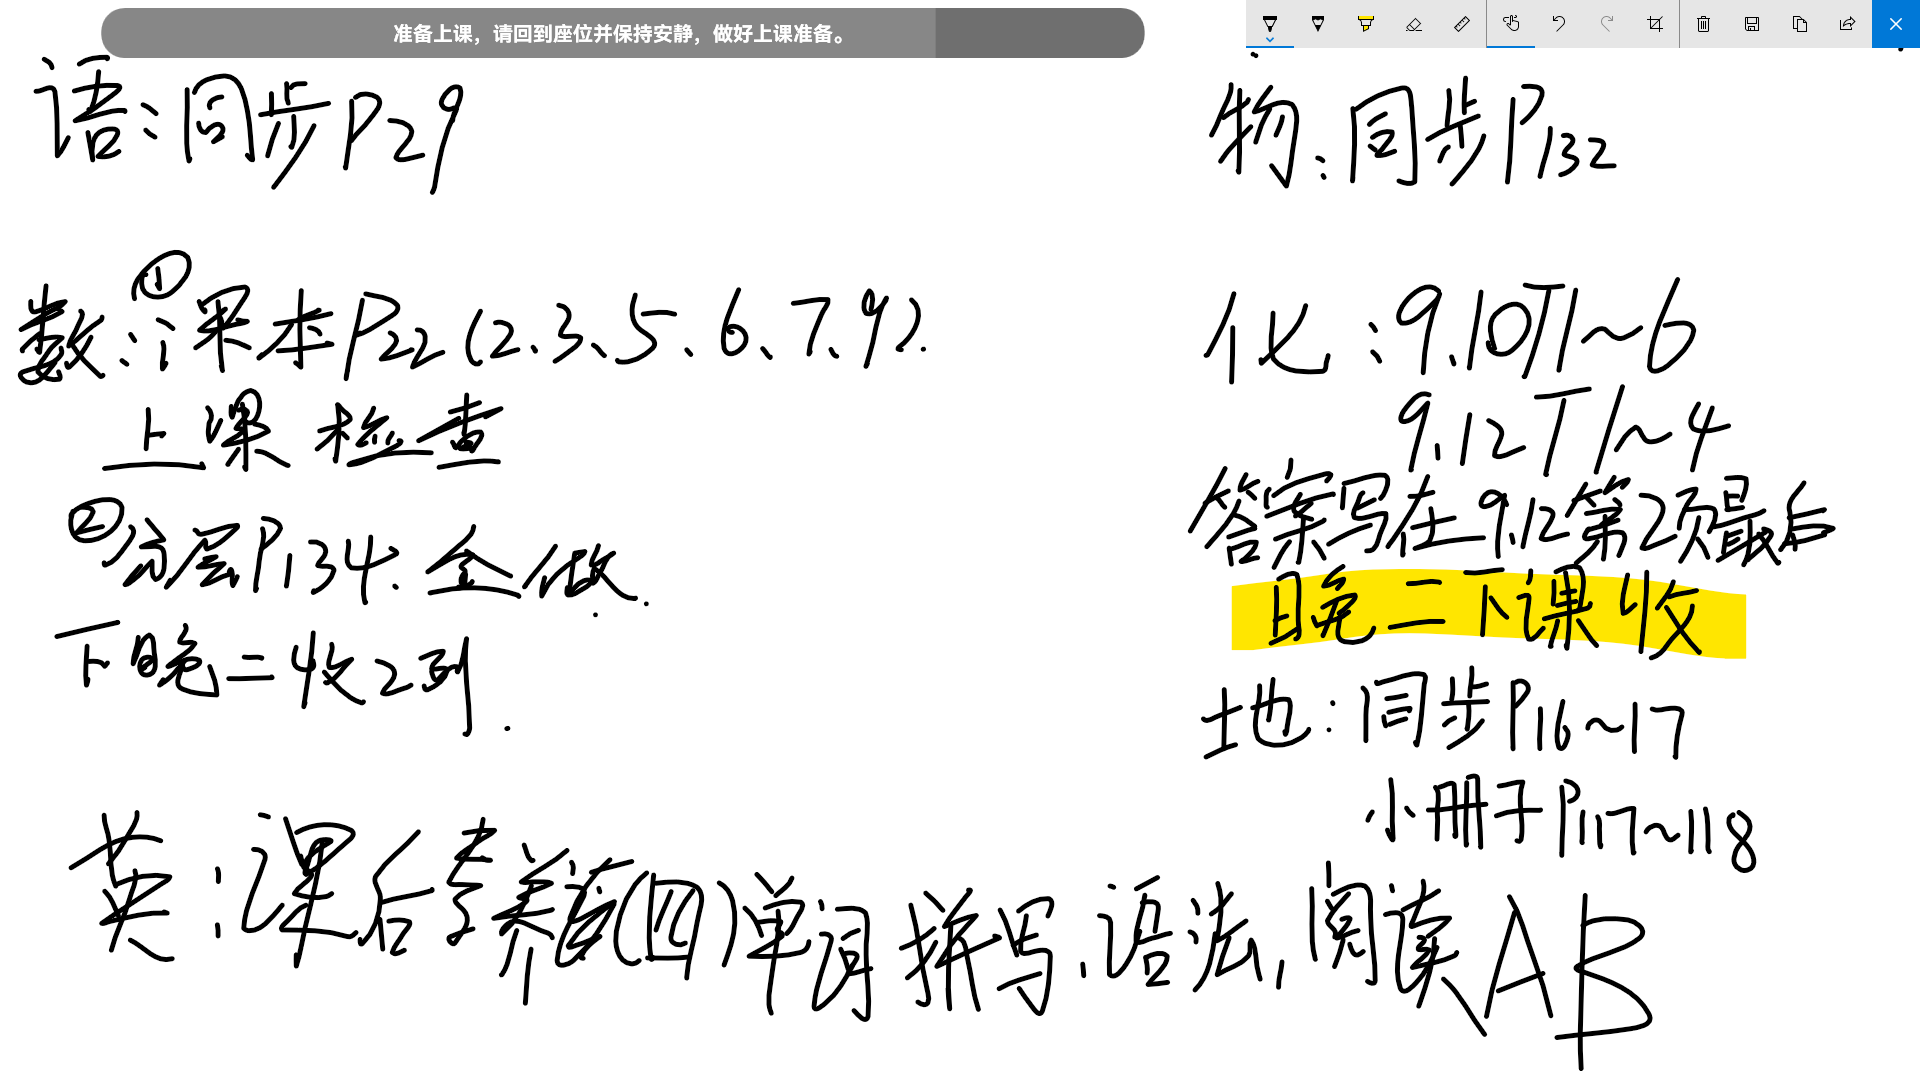 准备上课，请回到座位并保持安静，做好上课准备。
语：同步P29
数：①课本P22（2、3、5、6、7、9）.
上课检查
②分层P134.全做.
下晚二收2列.
英：课后素养(四)单词拼写、语法,阅读AB
物：同步P132
化：9.10T1~6
9.12T1~4
答案写在9.12第2页最后
晚二下课收
地：同步P16~17
小册子P117~118